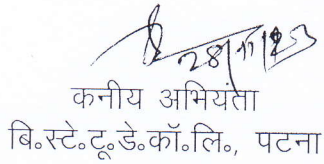 28/11/23
कनीय अभियंता
बि॰स्टे॰टू॰डे॰कॉ॰लि॰, पटना